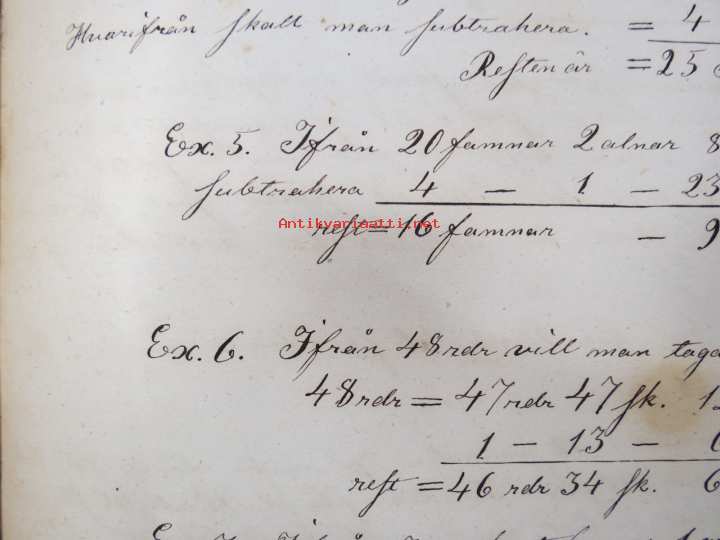 Hvarifrån skall man subtrahera. = 4
Resten är = 25
Ex. 5. Ifrån 20 famnar 2 alnar 8
subtrahera 4 — 1 — 23
Antikvariaatti.net
rest = 16 famnar — 9
Ex. 6. Ifrån 48 rdr vill man taga
48 rdr = 47 rdr 47 sk. 12
1 — 13 — 6
rest = 46 rdr 34 sk. 6